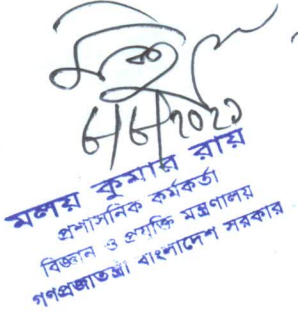 ৮/৮/২০২১
মলয় কুমার রায়
প্রশাসনিক কর্মকর্তা
বিজ্ঞান ও প্রযুক্তি মন্ত্রণালয়
গণপ্রজাতন্ত্রী বাংলাদেশ সরকার